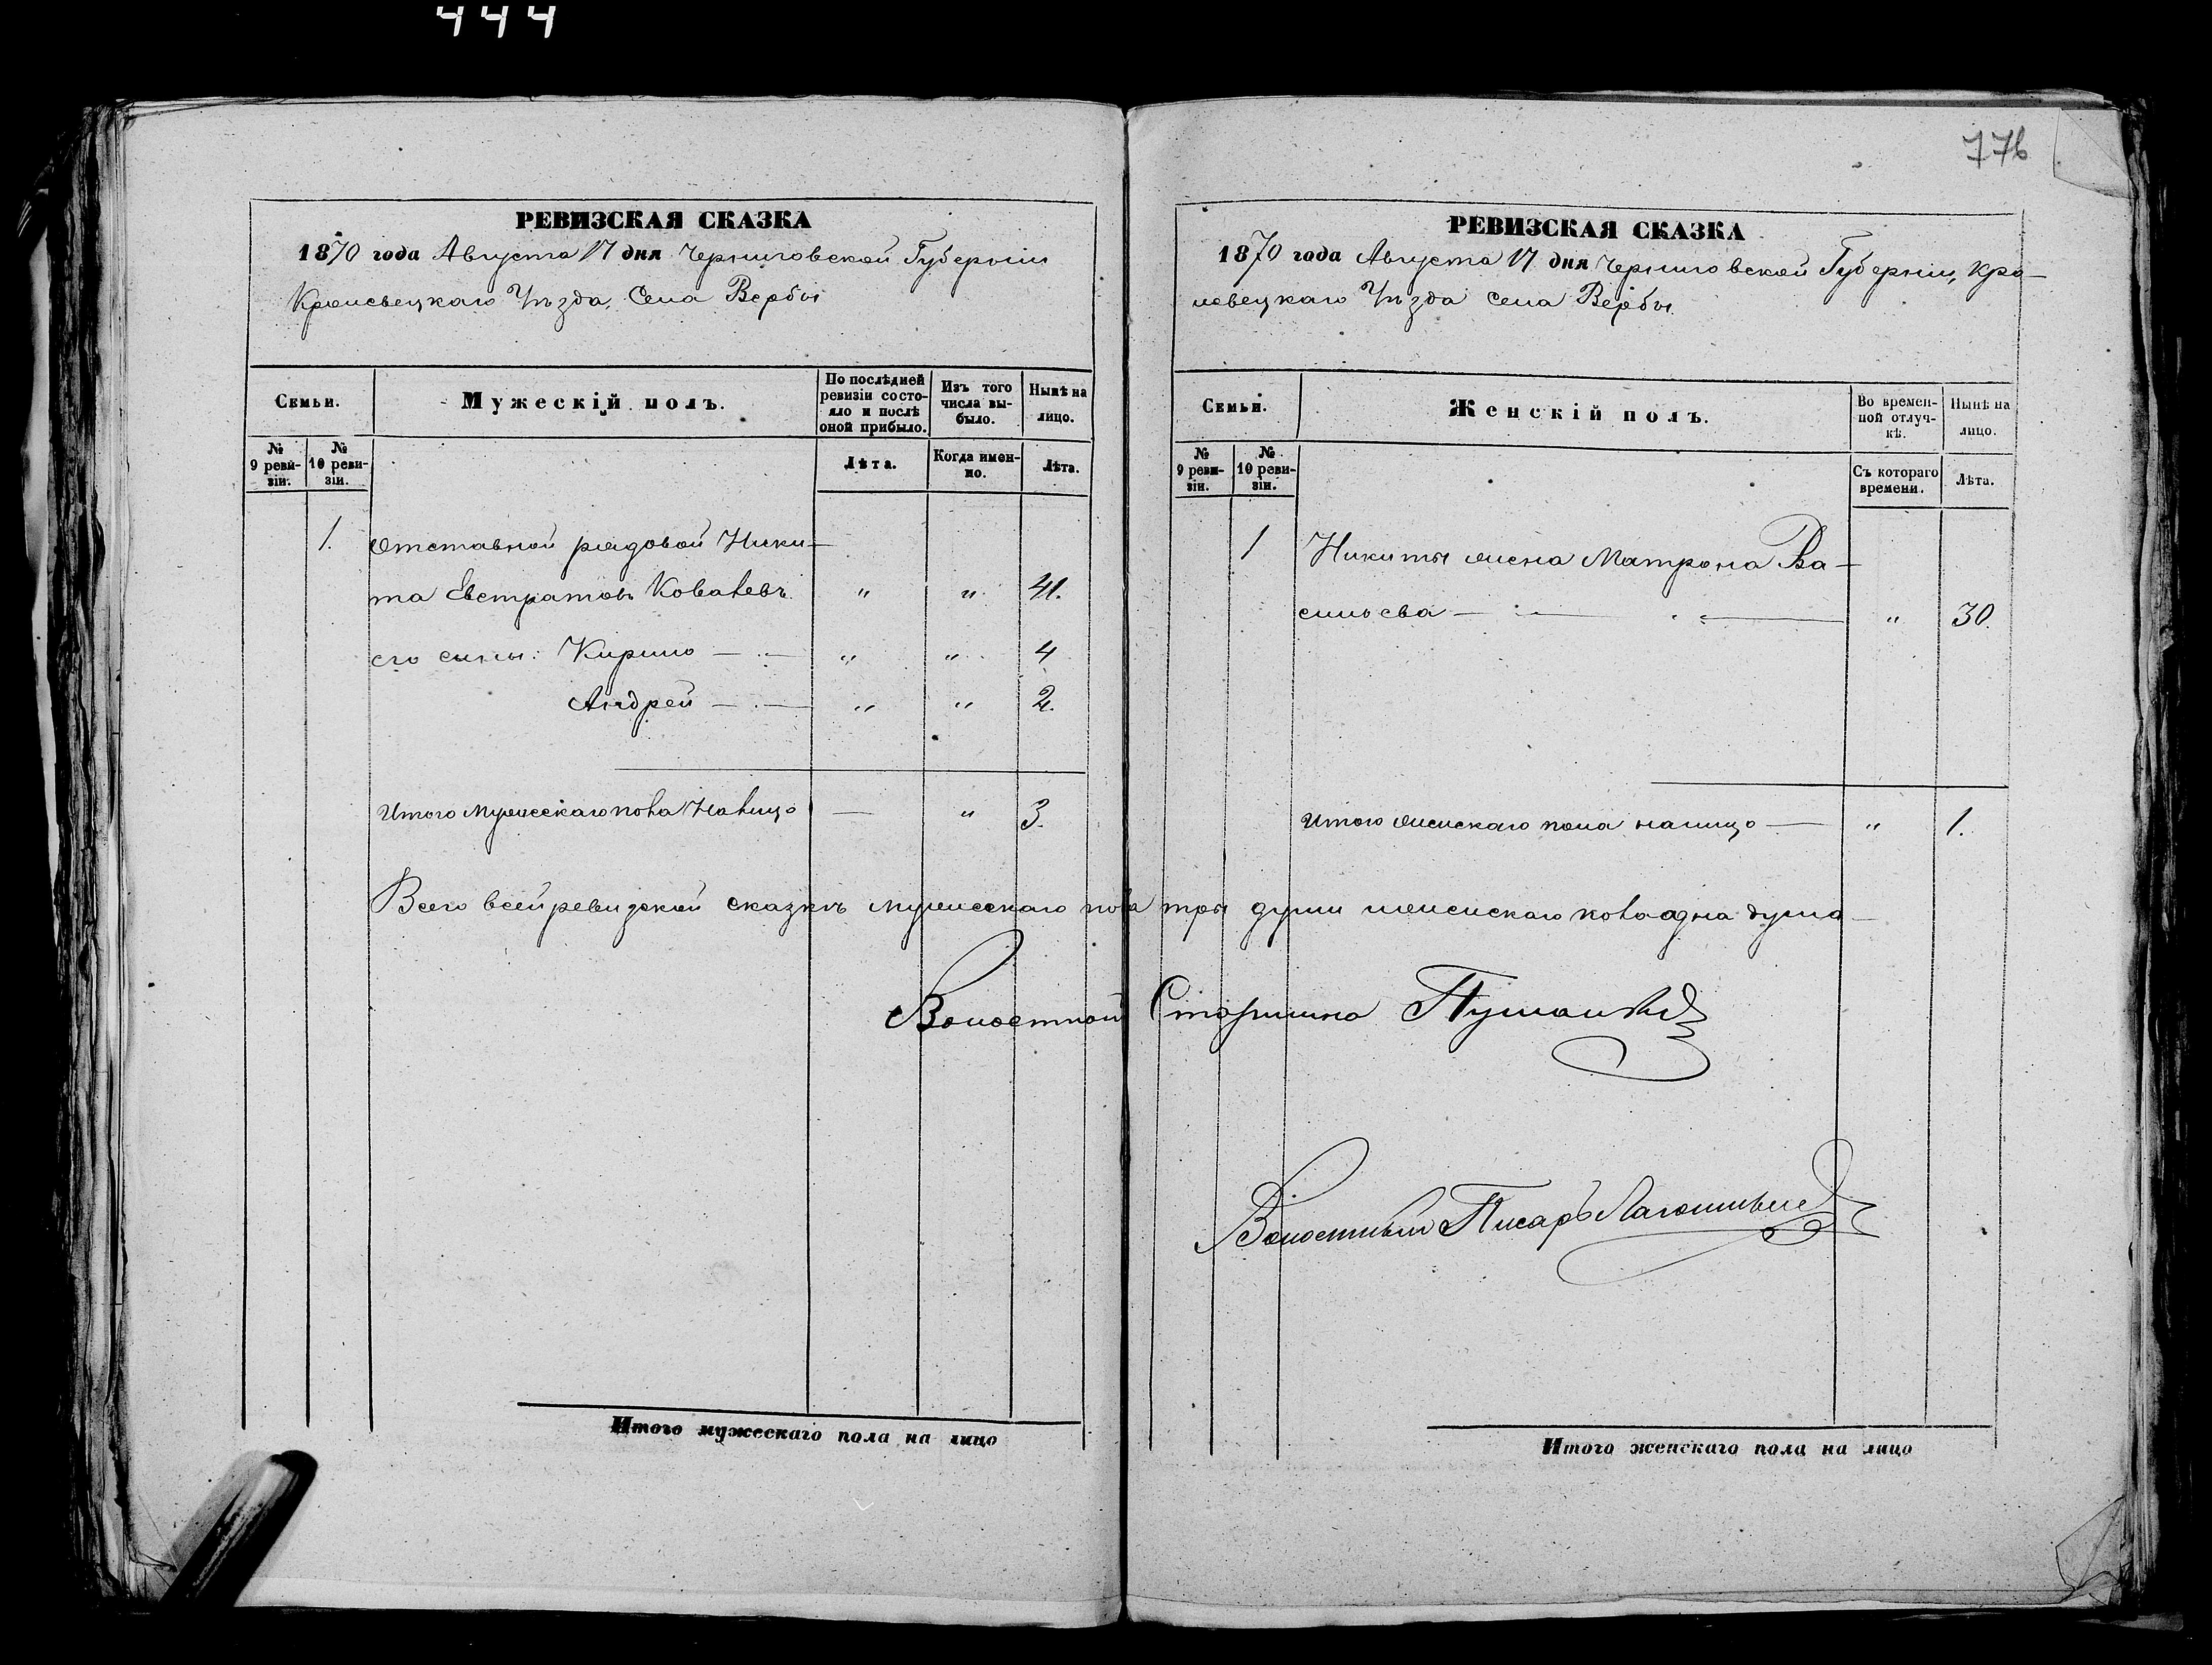 444
776
РЕВИЗСКАЯ СКАЗКА
1870 года Августа 17 дня Черниговской Губерніи
Кролевецкаго Уѣзда, Села Вербы
Семьи.
Мужескій полъ.
По послѣдней ревизіи состояло и послѣ оной прибыло.
Изъ того числа выбыло.
Нынѣ на лицо.
№ 9 ревизіи.
№ 10 ревизіи.
Лѣта.
Когда именно.
Лѣта.
1. Отставной рядовой Ники-
та Евстратовъ Ковалевъ " " 41.
его сыны: Кирило — " " 4
Андрей — " " 2.
Итого мужескаго пола Налицо — " 3.
РЕВИЗСКАЯ СКАЗКА
1870 года Августа 17 дня Черниговской Губерніи, Кро-
левецкаго Уѣзда села Вербы.
Семьи.
Женскій полъ.
Во временной отлучкѣ.
Нынѣ на лицо.
№ 9 ревизіи.
№ 10 ревизіи.
Съ котораго времени.
Лѣта.
1 Никиты жена Матрона Ва-
сильева — " 30.
Итого женскаго пола налицо — " 1.
Всего всей ревизской сказкѣ мужескаго пола три души женскаго пола одна душа
Волостной Старшина
Волостный Писарь
Итого мужескаго пола на лицо
Итого женскаго пола на лицо